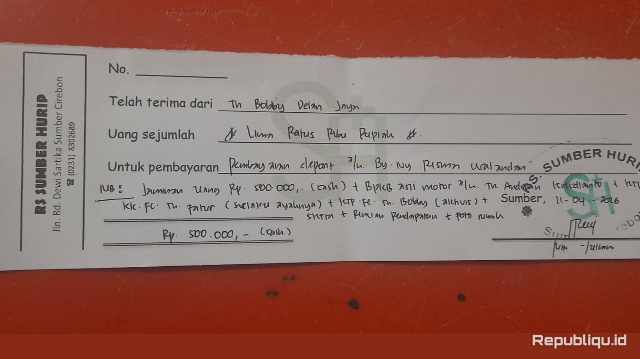 RS SUMBER HURIP
Jln. Rd. Dewi Sartika Sumber Cirebon
☎ (0231) 8302689
No.
Telah terima dari Tn Bobby Delan Jaya
Uang sejumlah # Lima Ratus Ribu Rupiah #
Untuk pembayaran Pembayaran deposit a/n By Ny Risma
NB: Jaminan Uang Rp. 500 000,- (cash) + BPKB asli motor a/n Tn
KK FC Tn. Fatur (selaku ayahnya) + KTP FC Tn. Bobby +
Sumber, 11-04-2026
+ Rincian Pendapatan + foto rumah
Rp. 500.000,- (cash)
RS. SUMBER HURIP
Republiqu.id